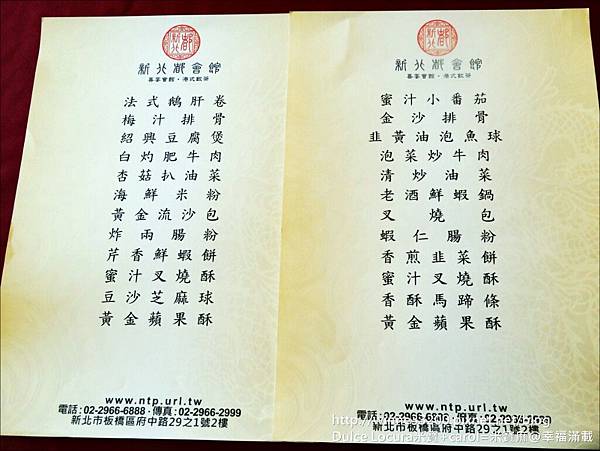 新北都會館
喜宴會館·港式飲茶
法式鵝肝卷
梅汁排骨
紹興豆腐煲
白灼肥牛肉
杏菇扒油菜
海鮮米粉
黃金流沙包
炸兩腸粉
芹香鮮蝦餅
蜜汁叉燒酥
豆沙芝麻球
黃金蘋果酥
www.ntp.url.tw
電話:02-2966-6888·傳真:02-2966-2999
新北市板橋區府中路29之1號2樓
新北都會館
喜宴會館·港式飲茶
蜜汁小番茄
金沙排骨
韭黃油泡魚球
泡菜炒牛肉
清炒油菜
老酒鮮蝦鍋
叉燒包
蝦仁腸粉
香煎韭菜餅
蜜汁叉燒酥
香酥馬蹄條
黃金蘋果酥
www.ntp.url.tw
電話:02-2966-6888·傳真:02-2966-2999
新北市板橋區府中路29之1號2樓
Dulce Locura米可+carol=米可魚@幸福滿載